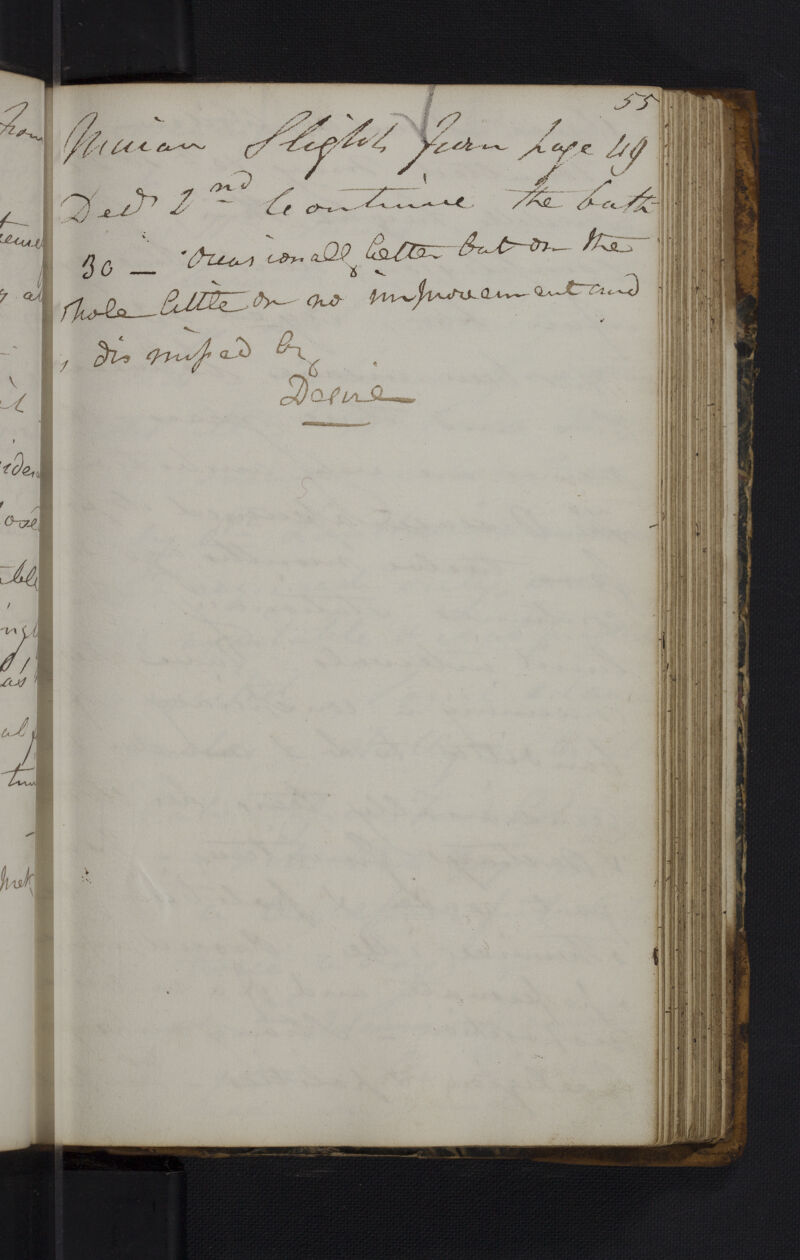 55
Slight from page 49
Decr 2nd Continue the bath
30 — Occasionally better but on the
whole little or no improvement and
is dismissed by
Desire